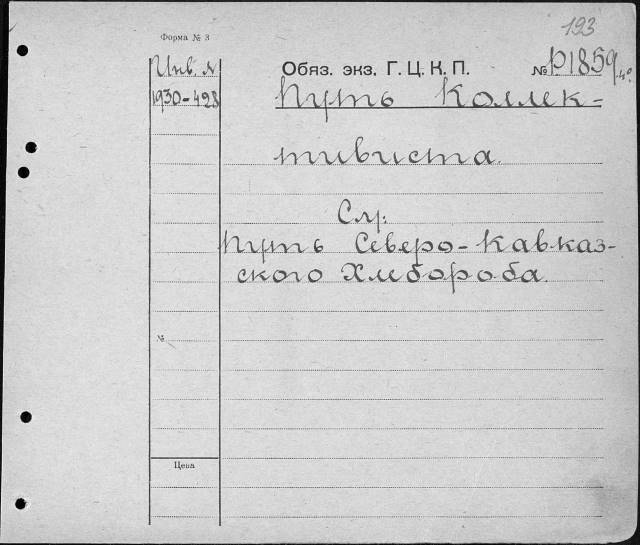 193
Форма № 3
Инв. №
Обяз. экз. Г. Ц. К. П.
№ П1859/4°
1930-428
Путь Коллек-
тивиста.
См.
Путь Северо-Кавказ-
ского Хлебороба.
№
Цена